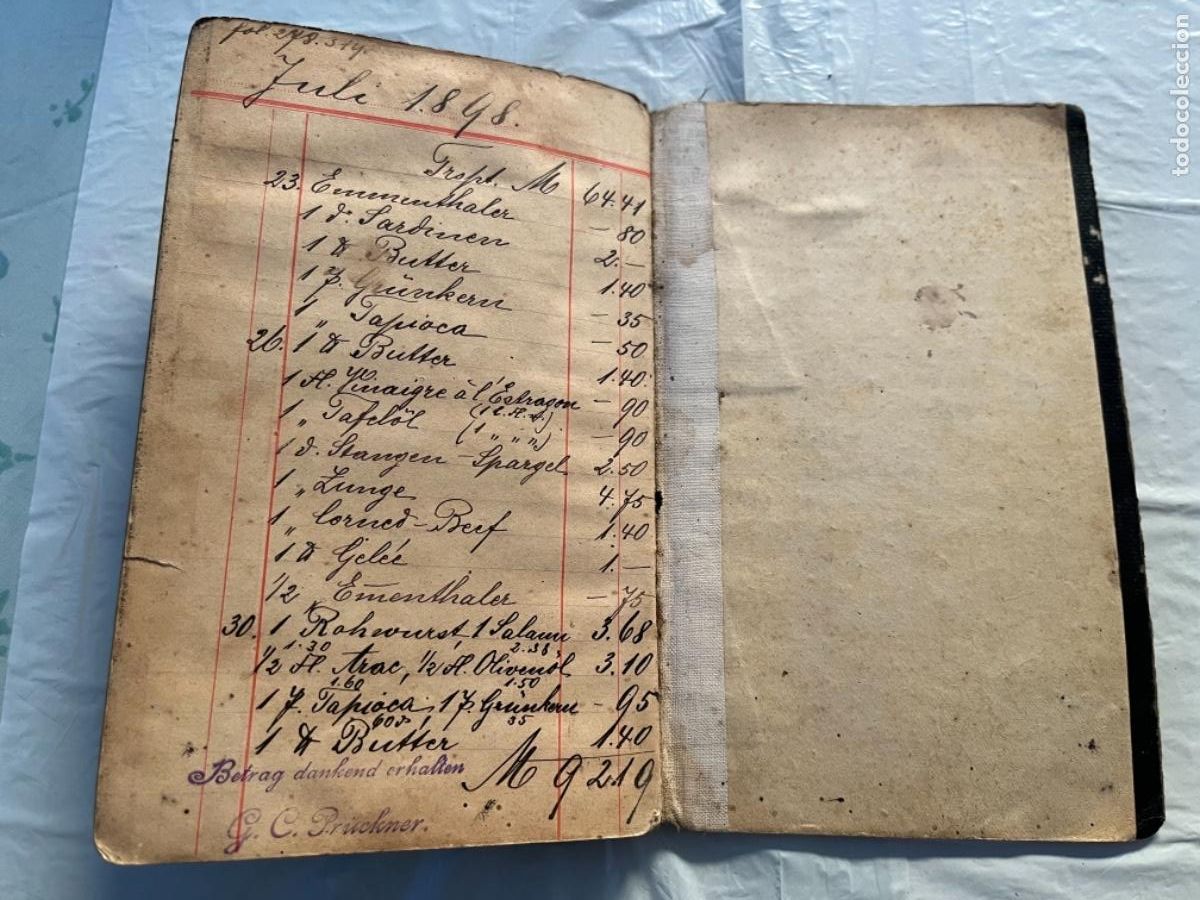 fol. 278. 314.
Juli 1898.
Trspt. M 64.41
23. Emmenthaler — 80
1 d. Sardinen 2.—
1 ℔ Butter 1.40
1 P. Grünkern — 35
1 „ Tapioca — 50
26. 1 ℔ Butter 1.40
1 Fl. Vinaigre à l'Estragon — 90
1 „ Tafelöl — 90
1 d. Stangen-Spargel 2.50
1 „ Zunge 4.75
1 „ Corned-Beef 1.40
1 ℔ Gelée 1.—
1/2 „ Ementhaler — 75
30. 1 Rohwurst, 1 Salami 3.68
1.30 2.38
1/2 Fl. Arac, 1/2 Fl. Olivenöl 3.10
1.60 1.50
1 P. Tapioca, 1 P. Grünkern — 95
60 35
1 ℔ Butter 1.40
M 92.19
Betrag dankend erhalten
G. C. Prückner.
todocoleccion